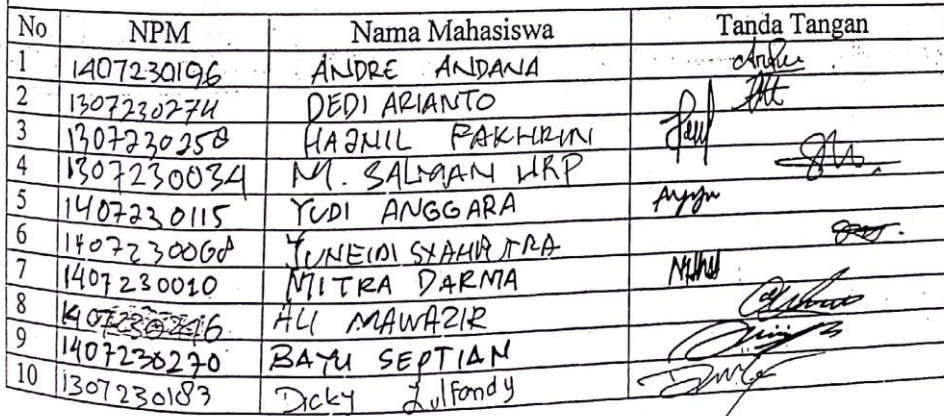 No NPM Nama Mahasiswa Tanda Tangan
1 1407230196 ANDRE ANDANA
2 1307230274 DEDI ARIANTO
3 1307230258 HAJNIL FAKHRIN
4 1307230034 M. SALMAN HRP
5 1407230115 YUDI ANGGARA
6 1407230068 JUNEIDI SYAHPUTRA
7 1407230010 MITRA DARMA
8 1407230246 ALI MAWAZIR
9 1407230270 BAYU SEPTIAN
10 1307230183 Dicky Zulfandy